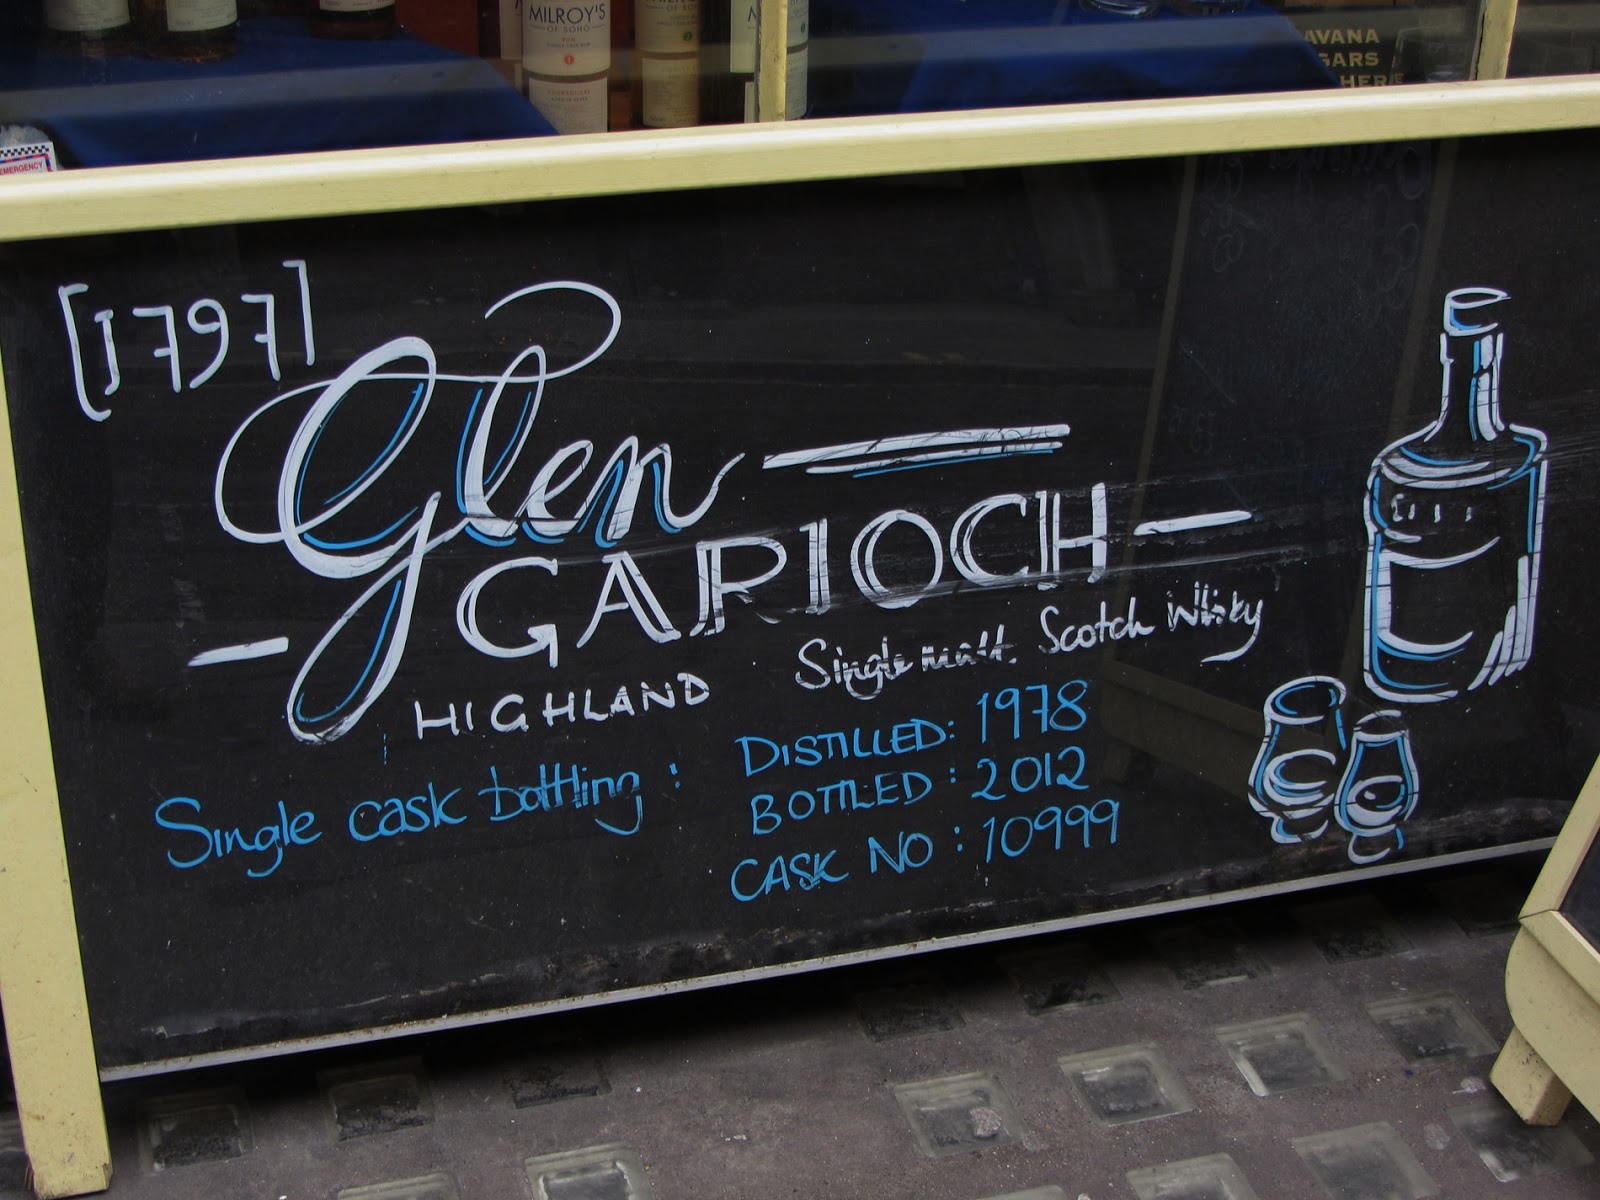 MILROY'S
OF SOHO
AVANA
GARS
HERE
EMERGENCY
[1797]
Glen
GARIOCH
HIGHLAND Single malt. Scotch Whisky
Single cask bottling : DISTILLED: 1978
BOTTLED : 2012
CASK NO : 10999